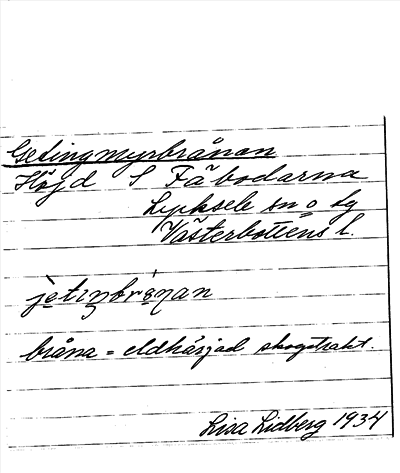 Getingmyrbrånan
Höjd S Fäbodarna
Lycksele sn o tg
Västerbottens l.
jètiŋbrånan
bråna = eldhärjad skogstrakt.
Lisa Lidberg 1934